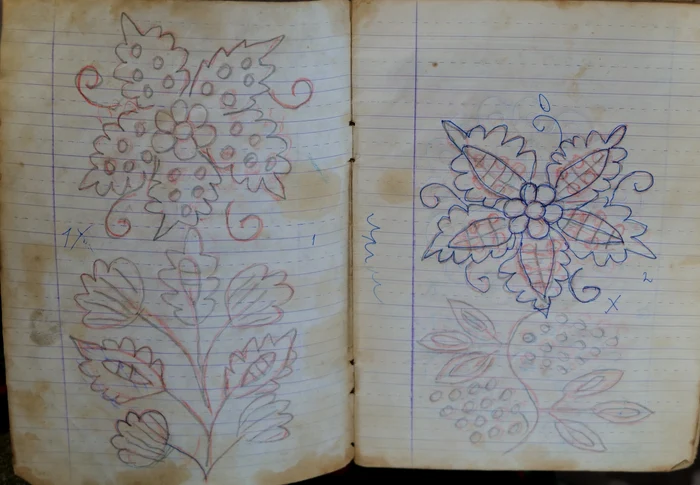 1X
1
2
X